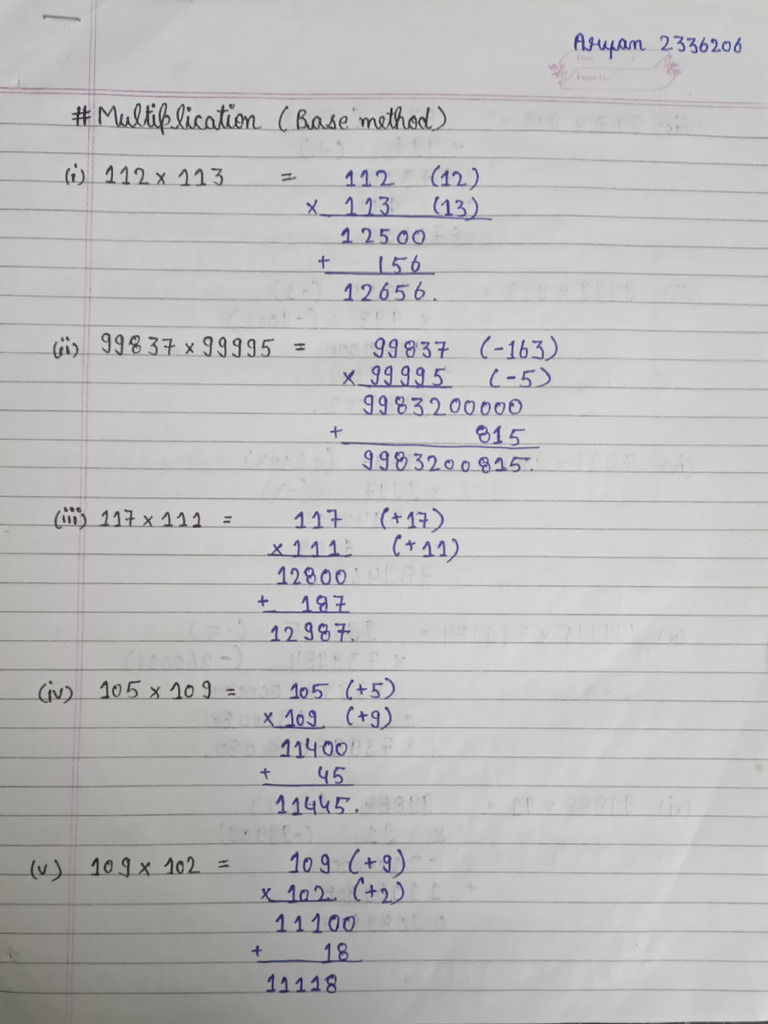 Aryan 2336206
# Multiplication (Base method)
(i) 112 x 113 = 112 (12)
x 113 (13)
12500
+ 156
12656.
(ii) 99837 x 99995 = 99837 (-163)
x 99995 (-5)
9983200000
+ 815
9983200815.
(iii) 117 x 111 = 117 (+17)
x 111 (+11)
12800
+ 187
12987.
(iv) 105 x 109 = 105 (+5)
x 109 (+9)
11400
+ 45
11445.
(v) 109 x 102 = 109 (+9)
x 102 (+2)
11100
+ 18
11118